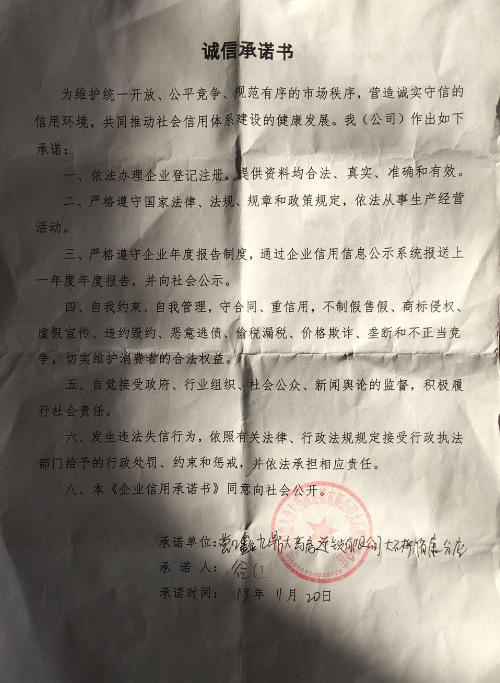 诚信承诺书
为维护统一开放、公平竞争、规范有序的市场秩序，营造诚实守信的
信用环境，共同推动社会信用体系建设的健康发展。我（公司）作出如下
承诺：
一、依法办理企业登记注册，提供资料均合法、真实、准确和有效。
二、严格遵守国家法律、法规、规章和政策规定，依法从事生产经营
活动。
三、严格遵守企业年度报告制度，通过企业信用信息公示系统报送上
一年度年度报告，并向社会公示。
四、自我约束、自我管理，守合同、重信用，不制假售假、商标侵权、
虚假宣传、违约毁约、恶意逃债、偷税漏税、价格欺诈、垄断和不正当竞
争，切实维护消费者的合法权益。
五、自觉接受政府、行业组织、社会公众、新闻舆论的监督，积极履
行社会责任。
六、发生违法失信行为，依照有关法律、行政法规规定接受行政执法
部门给予的行政处罚、约束和惩戒，并依法承担相应责任。
八、本《企业信用承诺书》同意向社会公开。
承诺单位：
承 诺 人：
承诺时间： 19年 11月 20日